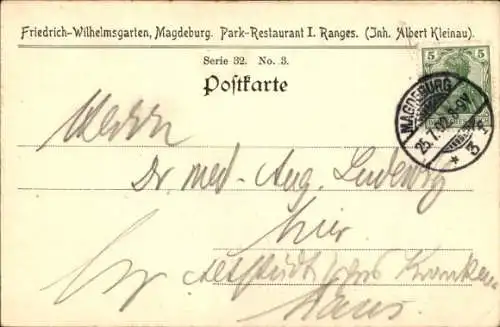 Friedrich-Wilhelmsgarten, Magdeburg. Park-Restaurant I. Ranges. (Inh. Albert Kleinau).
Serie 32. No. 3.
Postkarte
5 5
MAGDEBURG
3
Herrn
Dr. med. Aug. Ludewig
hier
Altstädtisches Kranken-
haus.